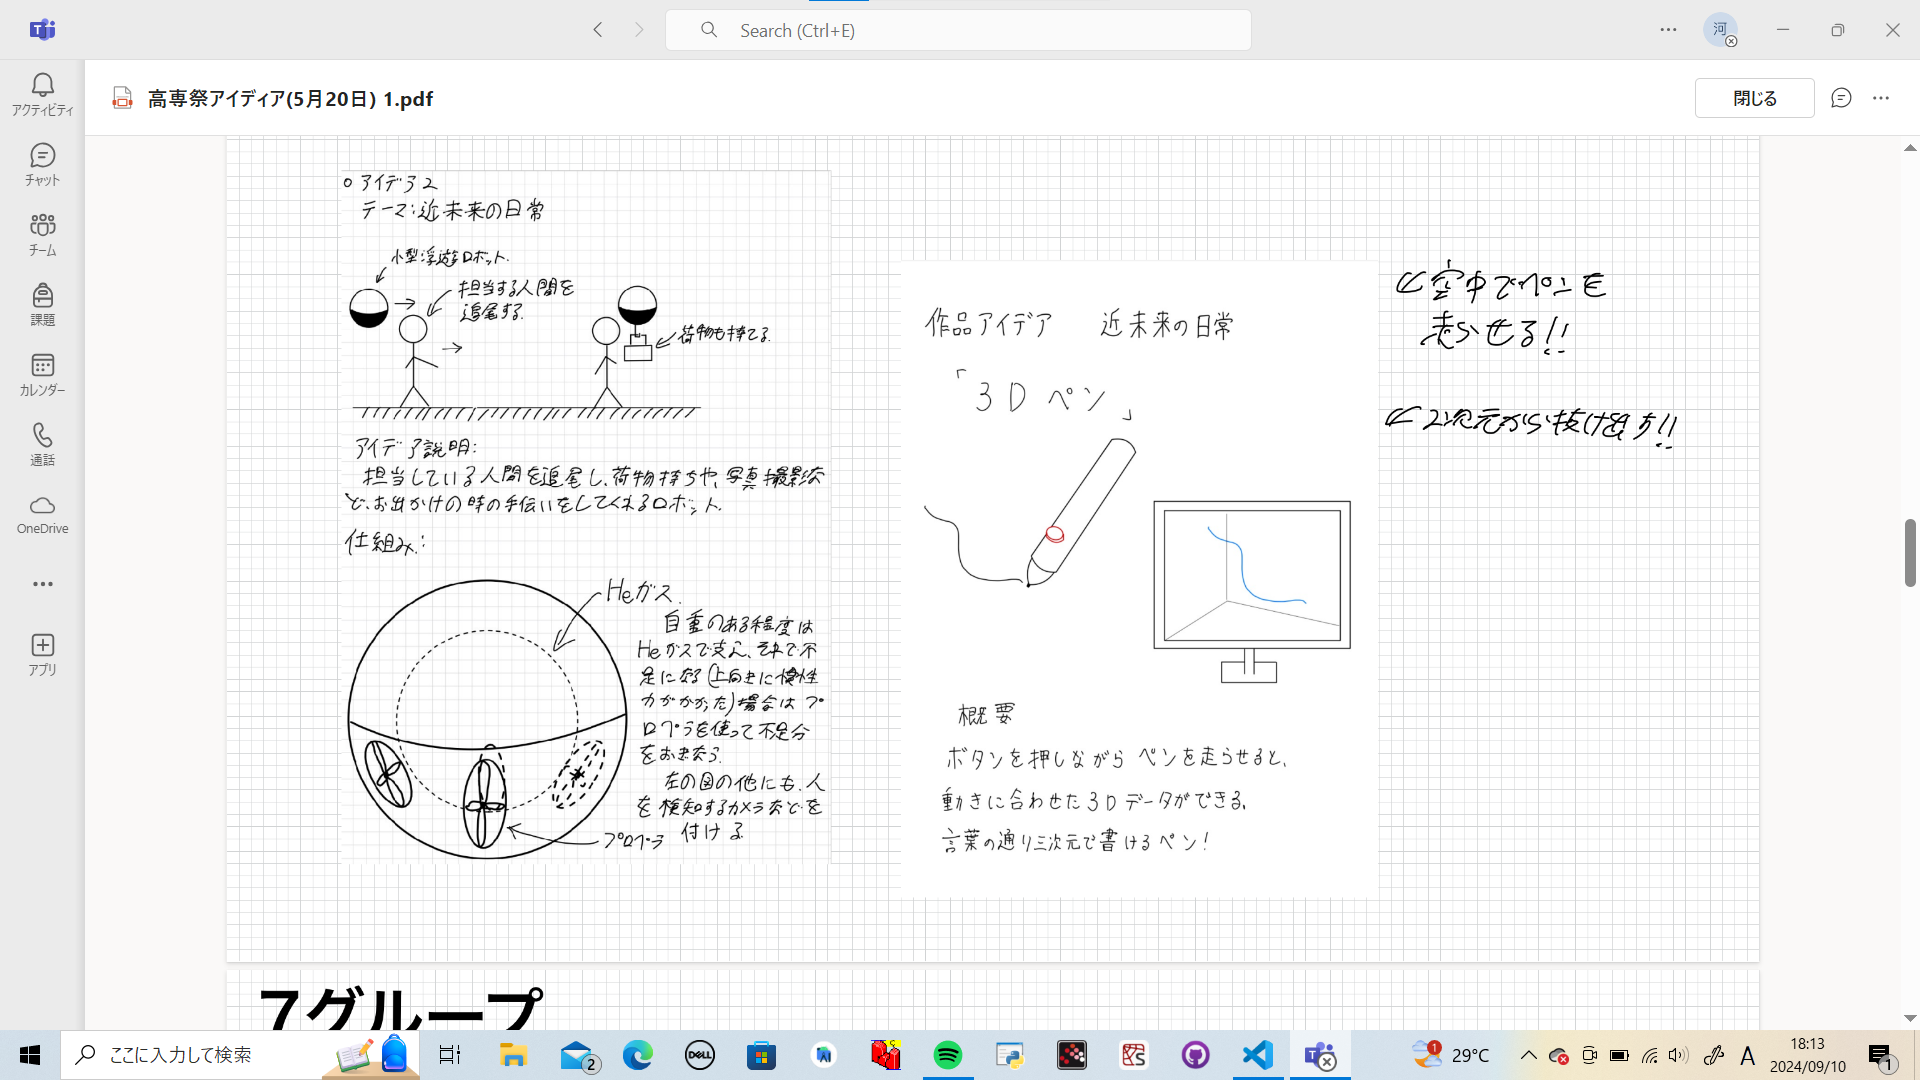 Search (Ctrl+E)
河
アクティビティ
チャット
チーム
課題
カレンダー
通話
OneDrive
アプリ
高専祭アイディア(5月20日) 1.pdf
閉じる
○ アイデア2
テーマ:近未来の日常
小型浮遊ロボット.
担当する人間を
追尾する.
荷物も持てる.
アイデア説明:
担当している人間を追尾し、荷物持ちや、写真撮影な
ど、お出かけの時の手伝いをしてくれるロボット.
仕組み:
Heガス.
自重のある程度は
Heガスで支え、それで不
足になる(上向きに慣性
力がかかった)場合はプ
ロペラを使って不足分
をおぎなう.
左の図の他にも、人
を検知するカメラなどを
付ける
プロペラ
作品アイデア 近未来の日常
「3D ペン」
概要
ボタンを押しながら ペンを走らせると、
動きに合わせた3Dデータができる。
言葉の通り三次元で書けるペン!
空中でペンを
走らせる!!
2次元から抜け出す!!
7グループ
ここに入力して検索
2
DELL
1
29°C
A
18:13
2024/09/10
1